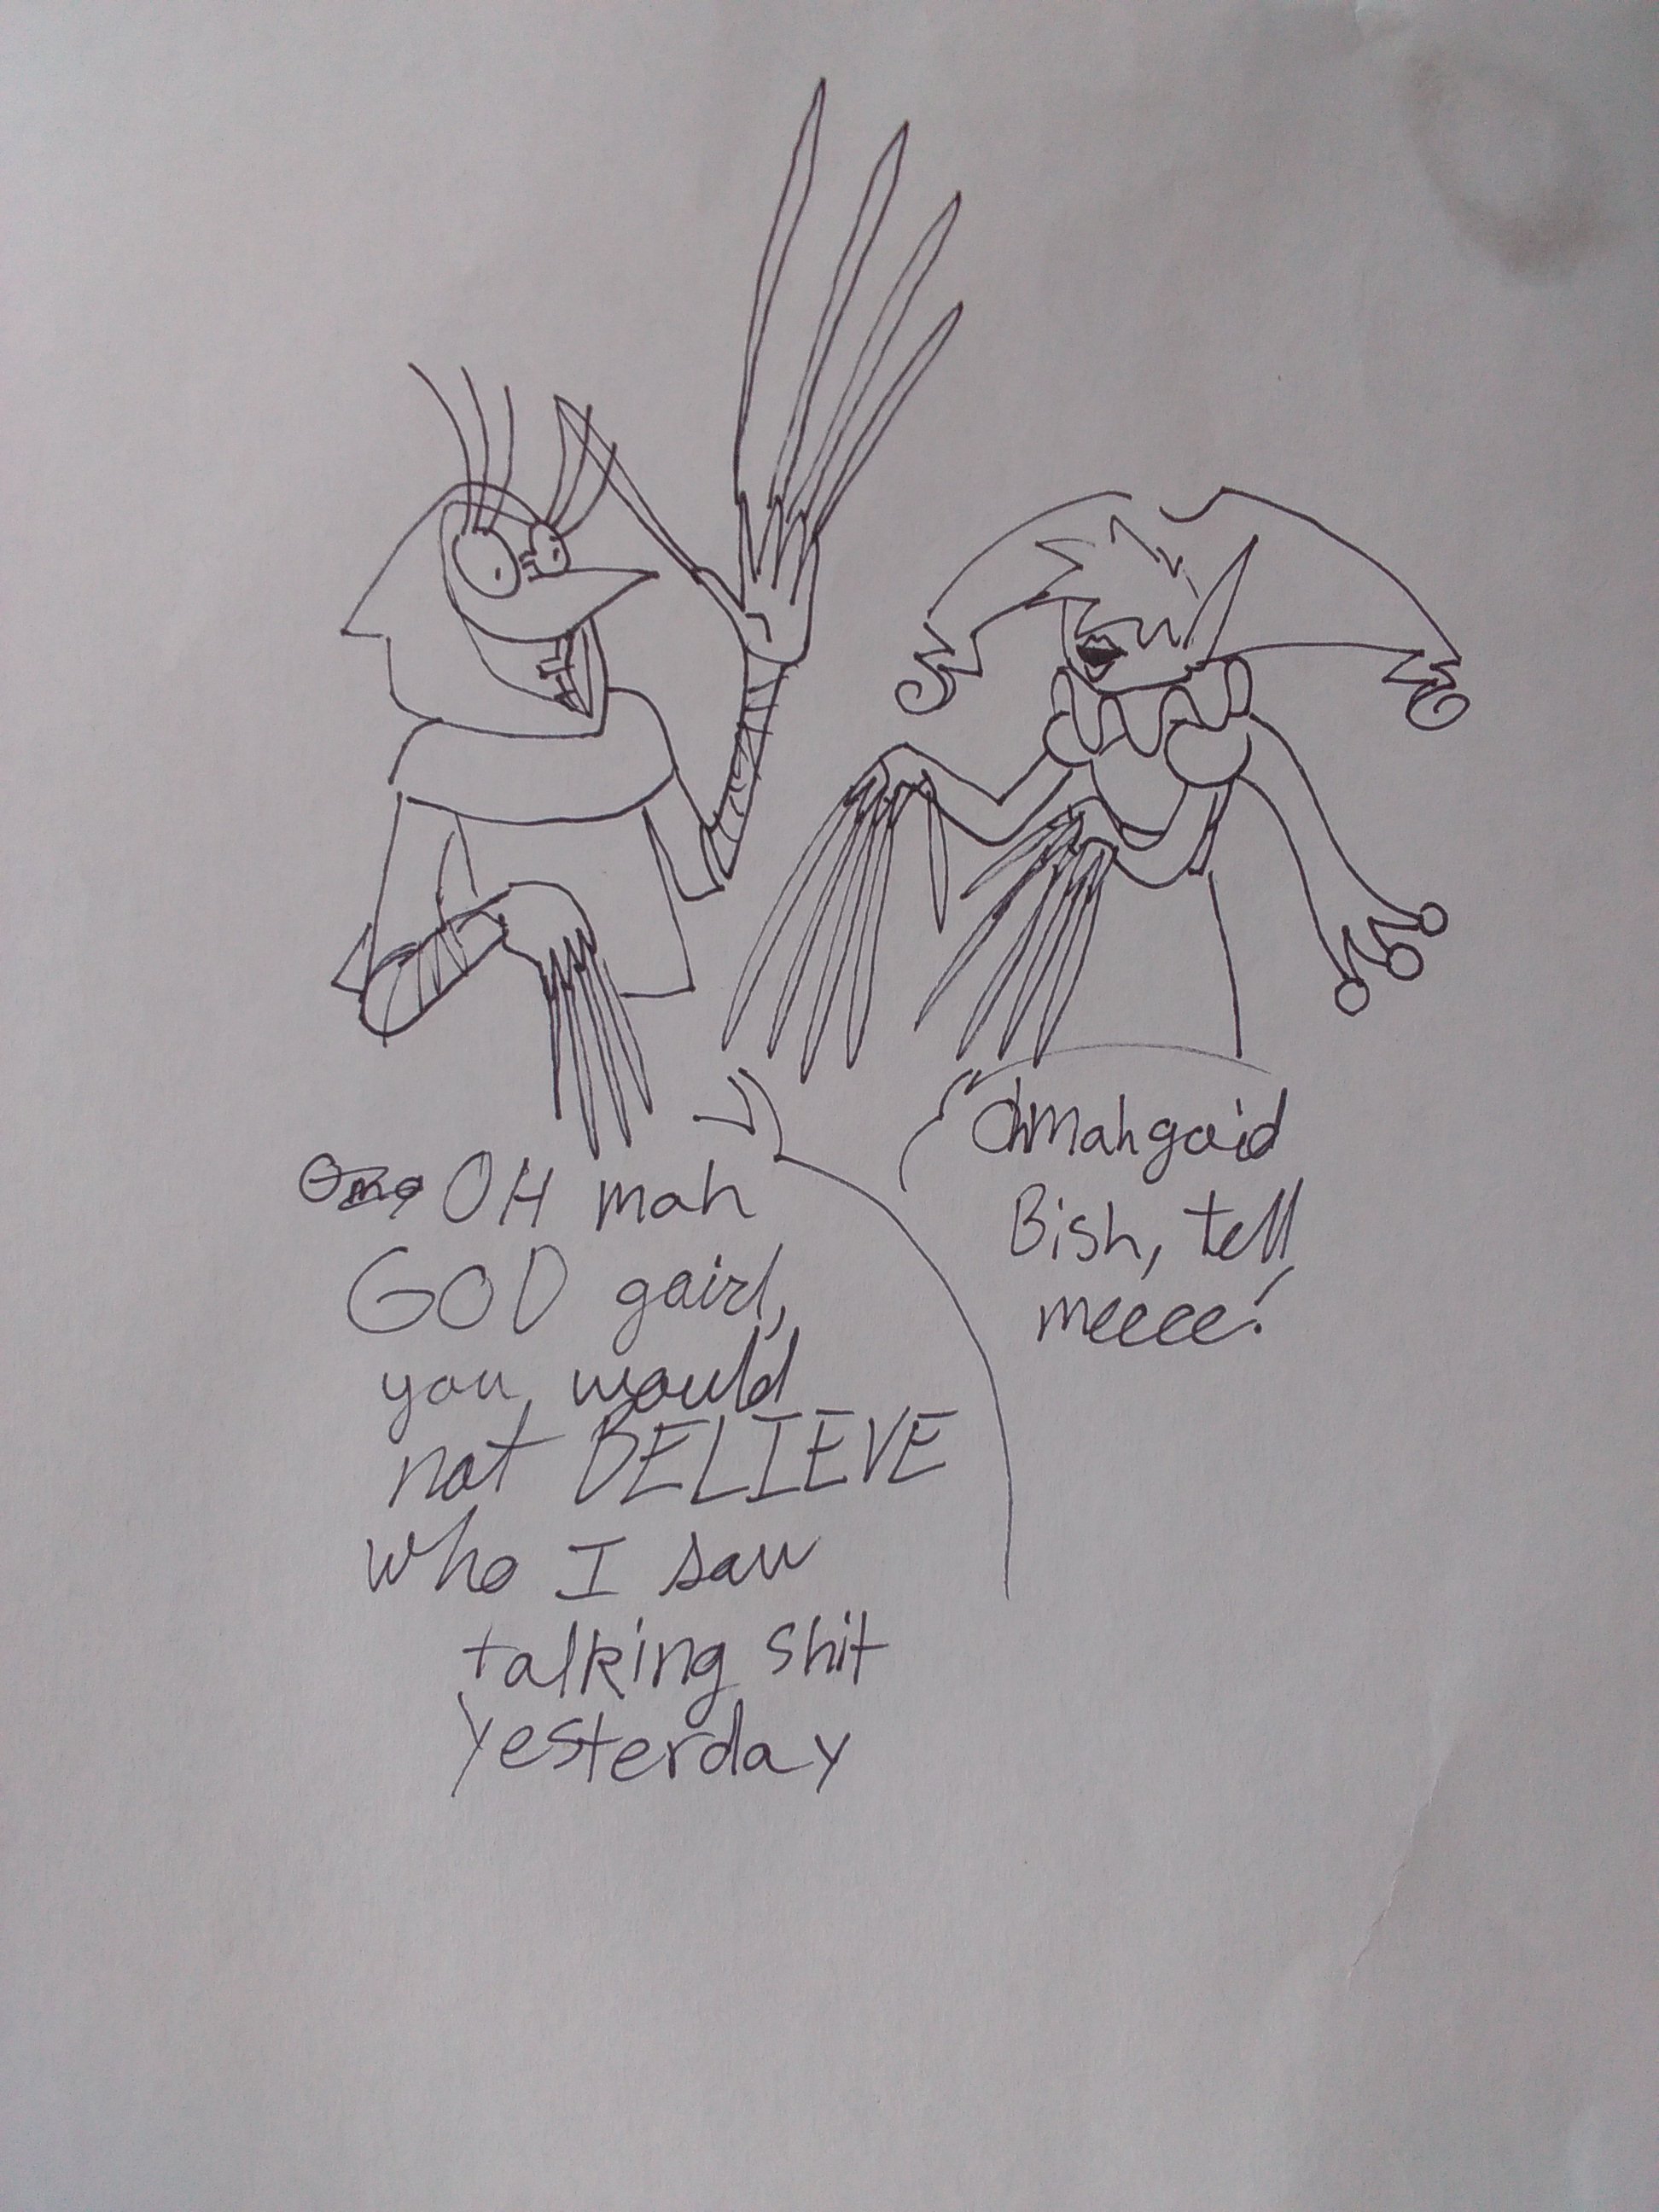 OH mah
GOD gairl,
you would
not BELIEVE
who I saw
talking shit
yesterday
Ohmahgaid
Bish, tell
meeee!